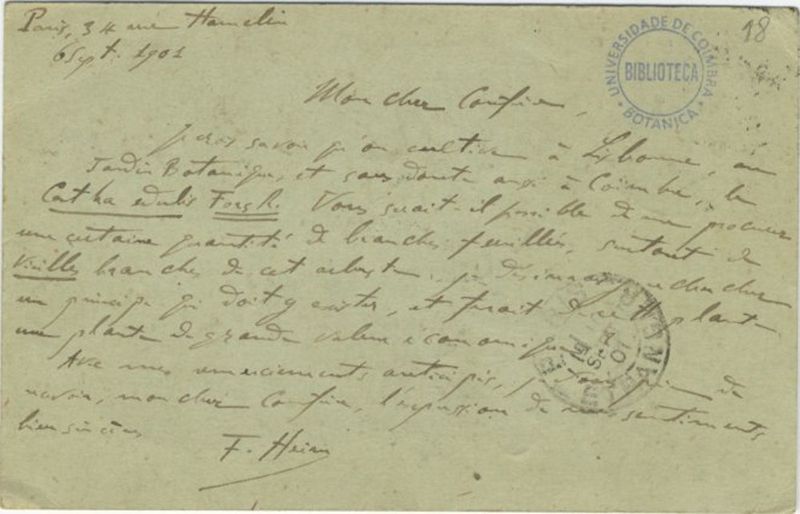 Paris, 34 rue Hamelin
6 Sept. 1901
18
UNIVERSIDADE DE COIMBRA
BIBLIOTECA
BOTANICA
Mon cher Confrère,
Je crois savoir qu'on cultive à Lisbonne, au
Jardin Botanique, et sans doute aussi à Coimbre, le
Catha edulis Forsk. Vous serait-il possible de me procurer
une certaine quantité de branches feuillées, surtout de
vieilles branches de cet arbuste. je désirerais rechercher
un principe qui doit y exister, et ferait de cette plante
une plante de grande valeur économique
Avec mes remerciements anticipés, je vous prie de
recevoir, mon cher Confrère, l'expression de mes sentiments
bien sincères
F. Heim